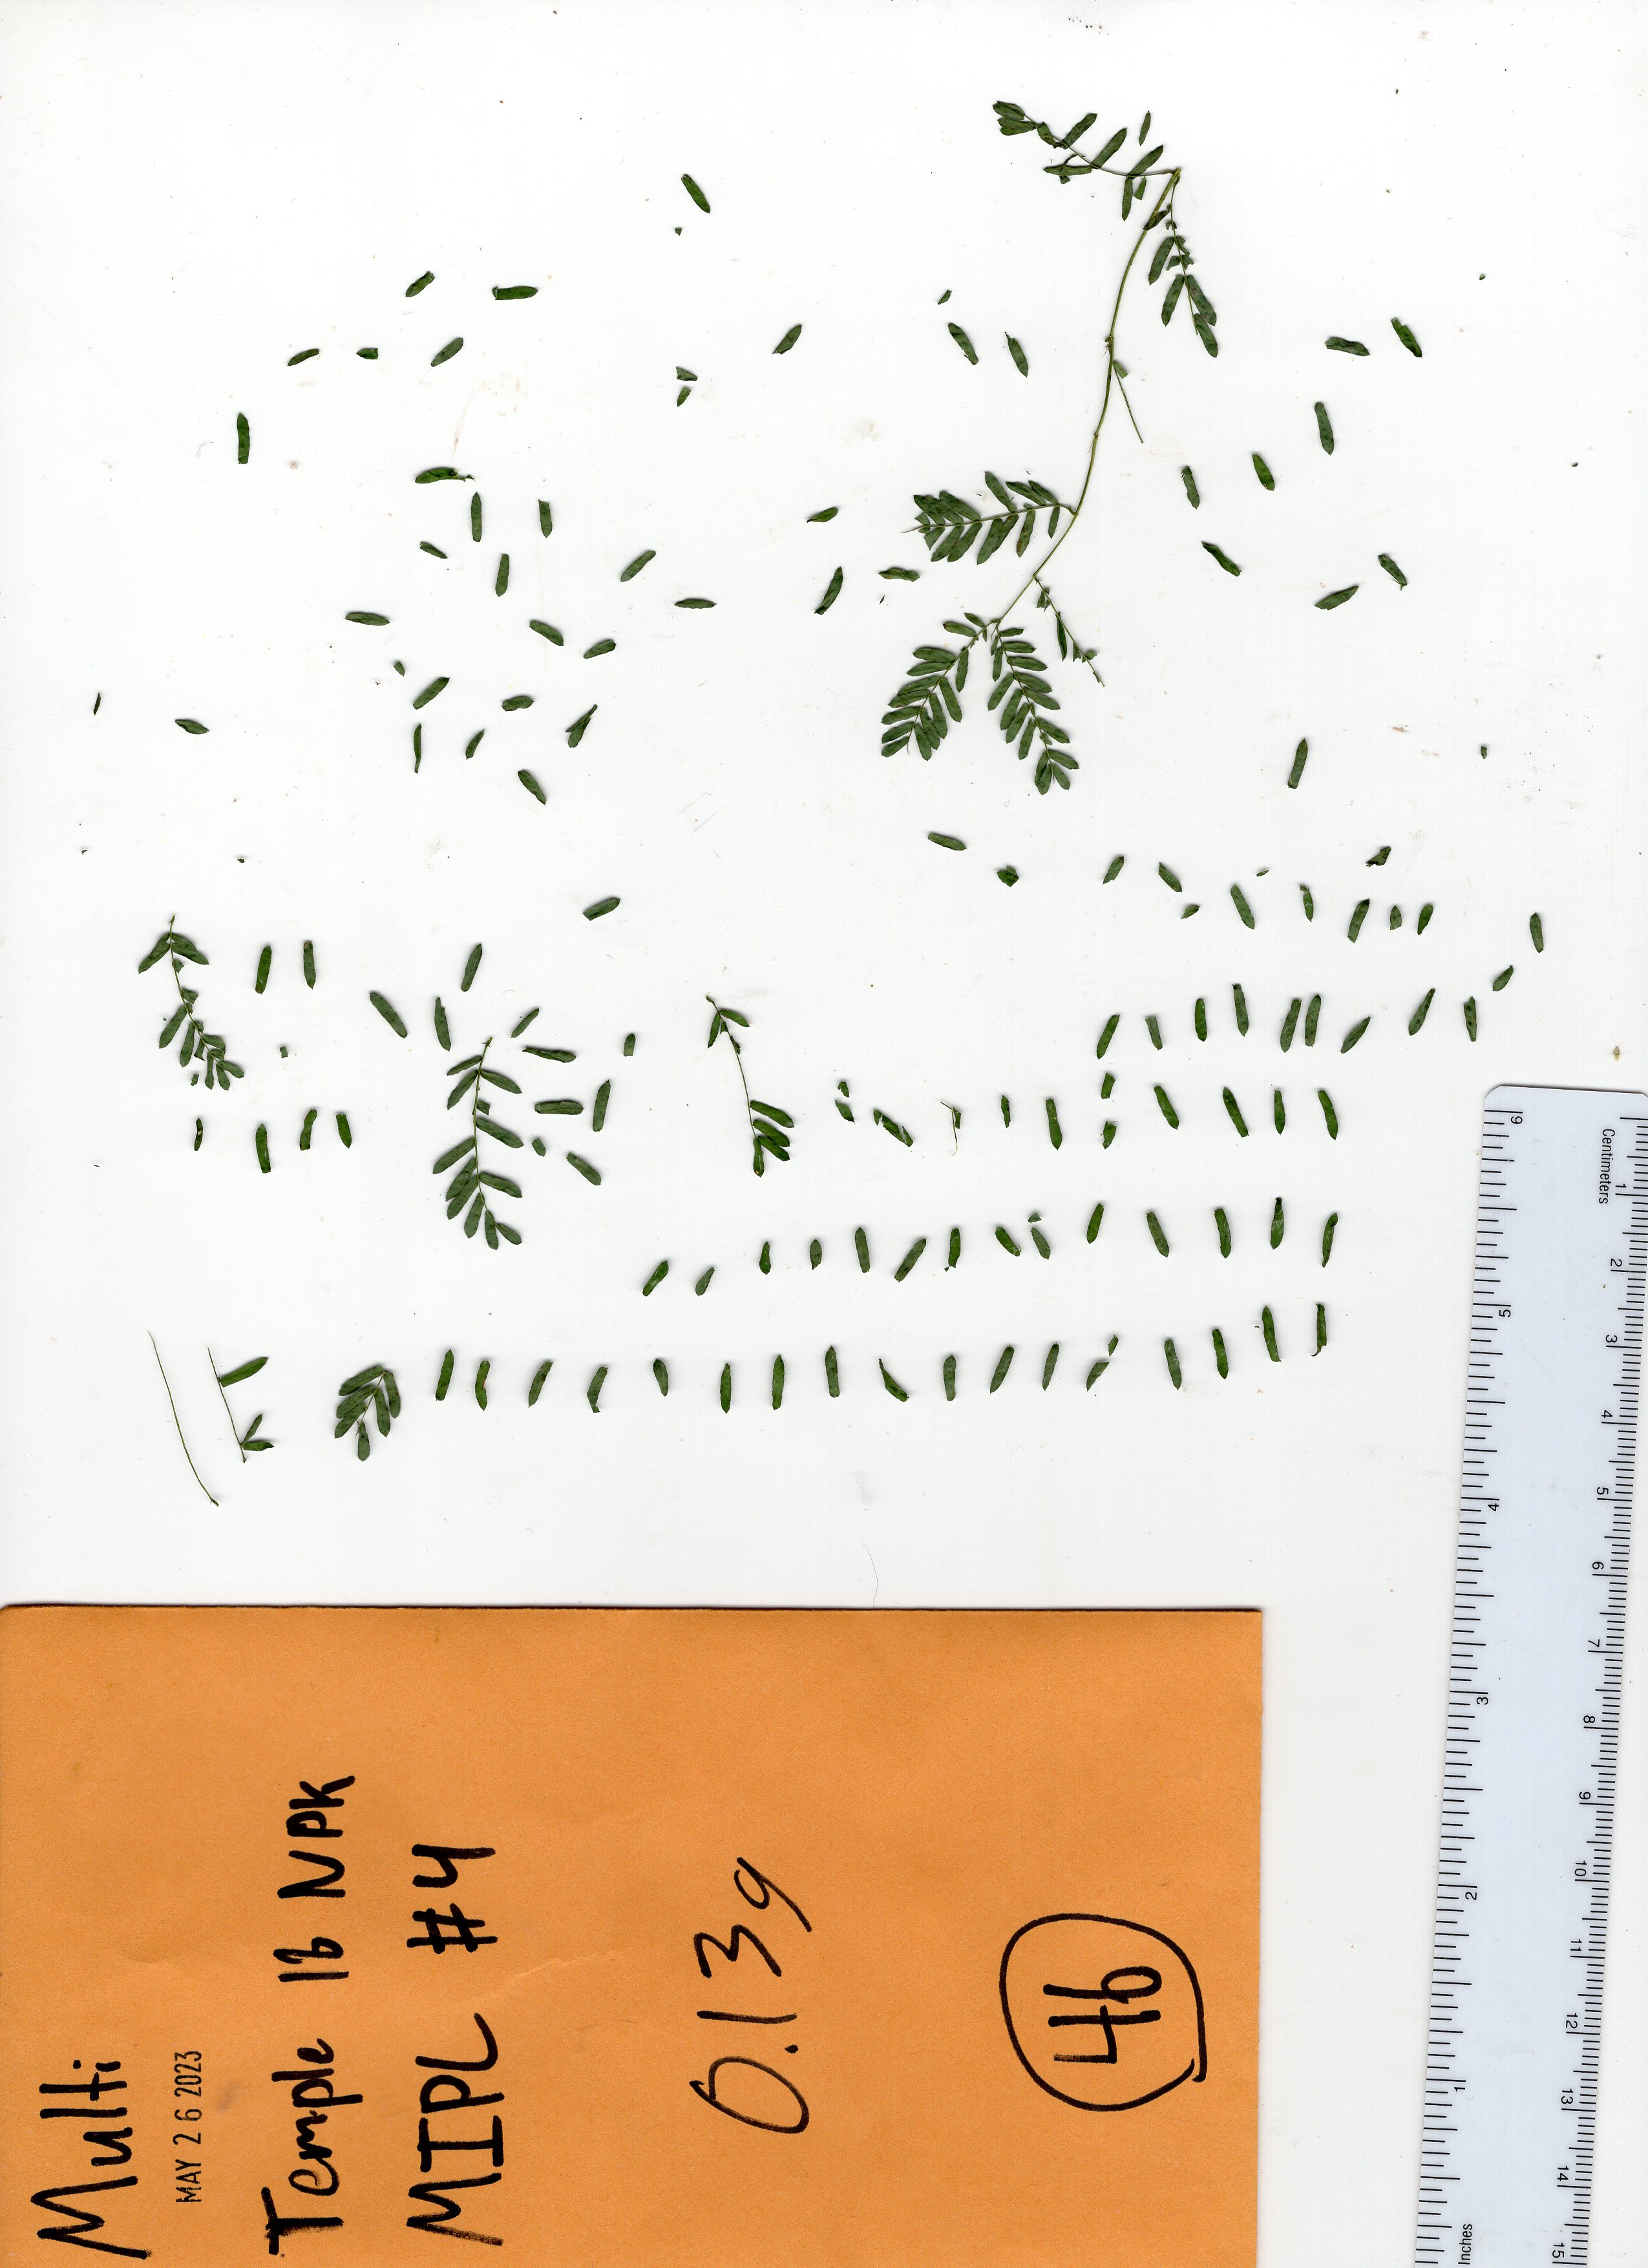 Multi
MAY 26 2023
Temple 16 NPK
MIPL #4
0.139
46
Centimeters
1
2
3
4
5
6
7
8
9
10
11
12
13
14
15
6
5
4
3
2
1
Inches